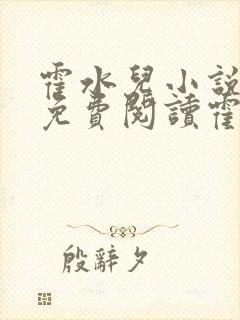 霍水兒小說
免費閱讀霍
殷辭夕